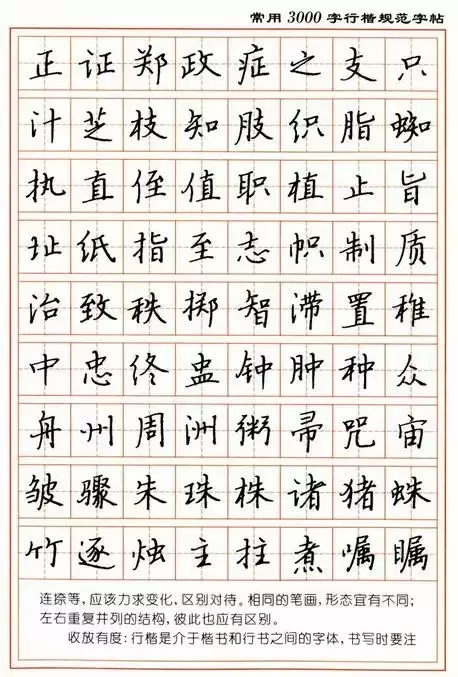 常用3000字行楷规范字帖
正证郑政症之支只
汁芝枝知肢织脂蜘
执直侄值职植止旨
址纸指至志帜制质
治致秩掷智滞置稚
中忠终盅钟肿种众
舟州周洲粥帚咒宙
皱骤朱珠株诸猪蛛
竹逐烛主拄煮嘱瞩
连捺等，应该力求变化，区别对待。相同的笔画，形态宜有不同；
左右重复并列的结构，彼此也应有区别。
收放有度：行楷是介于楷书和行书之间的字体，书写时要注